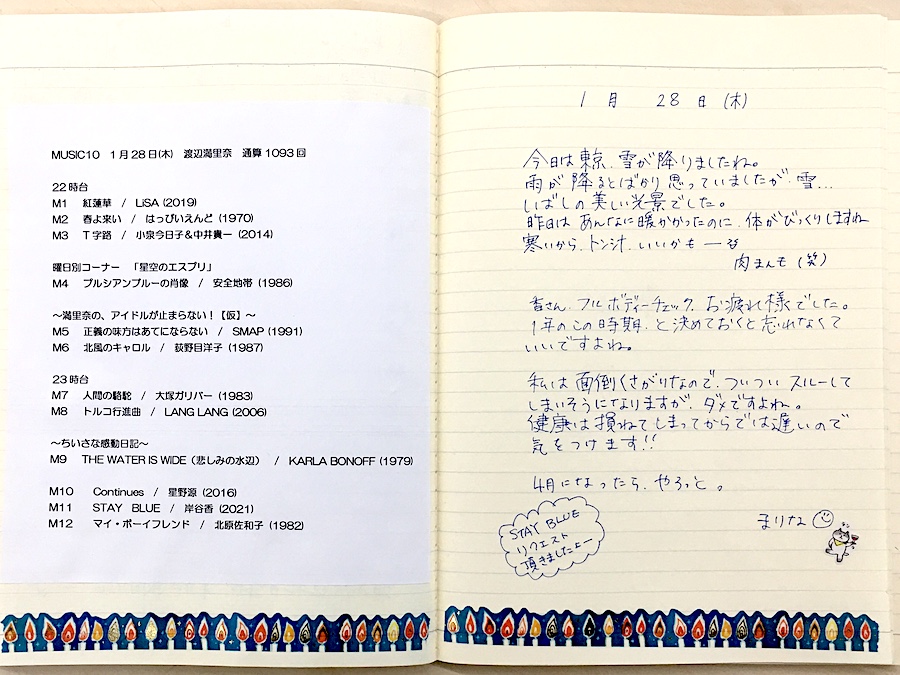 MUSIC10 1月28日(木) 渡辺満里奈 通算1093回
22時台
M1 紅蓮華 / LiSA (2019)
M2 春よ来い / はっぴいえんど (1970)
M3 T字路 / 小泉今日子&中井貴一 (2014)
曜日別コーナー 「星空のエスプリ」
M4 プルシアンブルーの肖像 / 安全地帯 (1986)
~満里奈の、アイドルが止まらない!【仮】~
M5 正義の味方はあてにならない! / SMAP (1991)
M6 北風のキャロル / 荻野目洋子 (1987)
23時台
M7 人間の駱駝 / 大塚ガリバー (1983)
M8 トルコ行進曲 / LANG LANG (2006)
~ちいさな感動日記~
M9 THE WATER IS WIDE (悲しみの水辺) / KARLA BONOFF (1979)
M10 Continues / 星野源 (2016)
M11 STAY BLUE / 岸谷香 (2021)
M12 マイ・ボーイフレンド / 北原佐和子 (1982)
1月 28日(木)
今日は東京、雪が降りましたね。
雨が降るとばかり思っていましたが、雪...
いばしの美しい光景でした。
昨日はあんなに暖かかったのに、体がびっくりしますね
寒いから、トン汁、いいかもー
肉まんも(笑)
香さん、フルボディーチェック、お疲れ様でした。
1年のこの時期、と決めておくと忘れなくて
いいですよね。
私は面倒くさがりなので、ついついスルーして
しまいそうになりますが、ダメですよね。
健康は損ねてしまってからでは遅いので
気をつけます!!
4月になったら、やろっと。
まりな
STAY BLUE
リクエスト
頂きましたよー